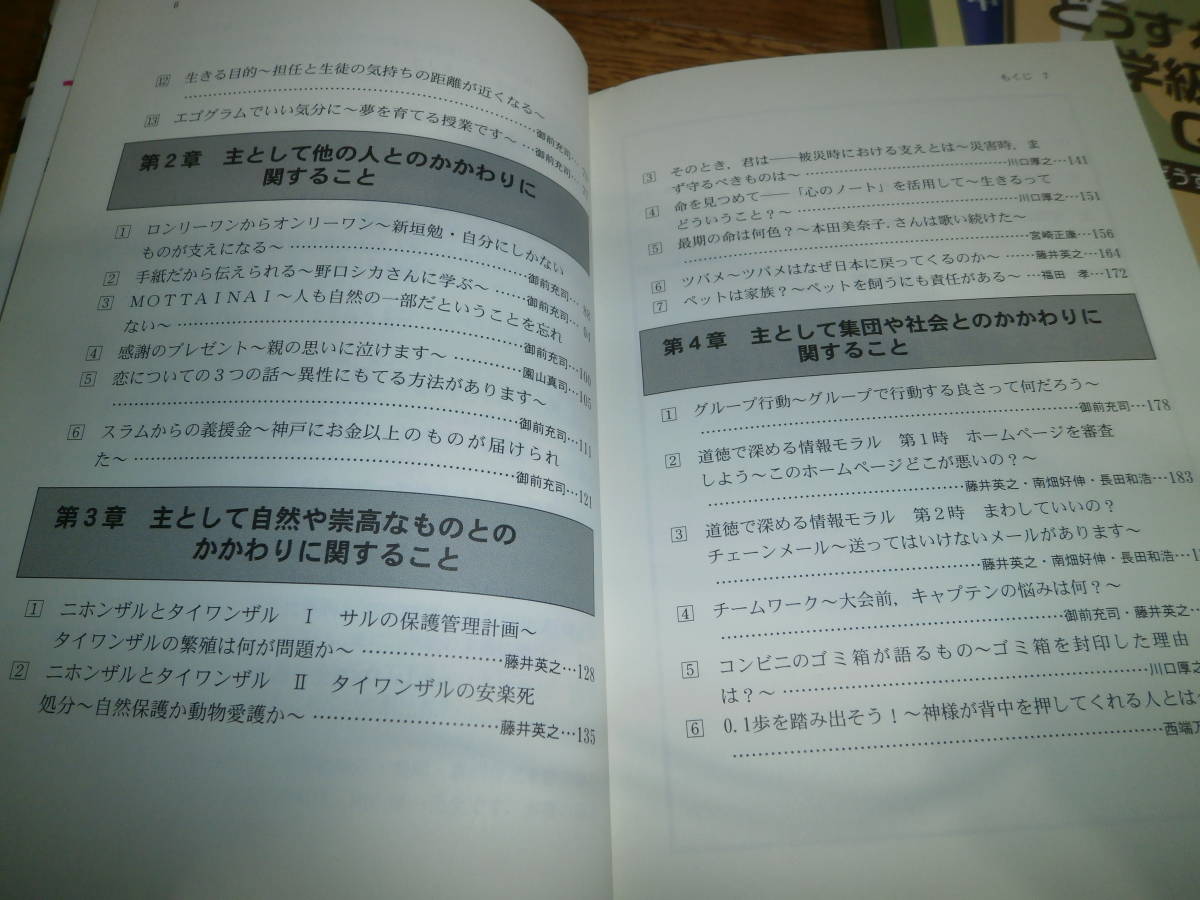 6
12 生きる目的～担任と生徒の気持ちの距離が近くなる～
御前充司
13 エゴグラムでいい気分に～夢を育てる授業です～ …御前充司
第2章 主として他の人とのかかわりに
関すること
1 ロンリーワンからオンリーワン～新垣勉・自分にしかない
ものが支えになる～ 御前充司… 88
2 手紙だから伝えられる～野口シカさんに学ぶ～ ……御前充司… 94
3 MOTTAINAI～人も自然の一部だということを忘れ
ない～ 御前充司…100
4 感謝のプレゼント～親の思いに泣けます～ 園山真司…105
5 恋についての3つの話～異性にもてる方法があります～
御前充司…111
6 スラムからの義援金～神戸にお金以上のものが届けられ
た～ 御前充司…121
第3章 主として自然や崇高なものとの
かかわりに関すること
1 ニホンザルとタイワンザル Ⅰ サルの保護管理計画～
タイワンザルの繁殖は何が問題か～ 藤井英之…128
2 ニホンザルとタイワンザル Ⅱ タイワンザルの安楽死
処分～自然保護か動物愛護か～ 藤井英之…135
もくじ 7
3 そのとき，君は――被災時における支えとは～災害時，ま
ず守るべきものは～ 川口厚之…141
4 命を見つめて――「心のノート」を活用して～生きるって
どういうこと？～ 川口厚之…151
5 最期の命は何色？～本田美奈子.さんは歌い続けた～
宮崎正康…156
6 ツバメ～ツバメはなぜ日本に戻ってくるのか～ ……藤井英之…164
7 ペットは家族？～ペットを飼うにも責任がある～ …福田 孝…172
第4章 主として集団や社会とのかかわりに
関すること
1 グループ行動～グループで行動する良さって何だろう～
御前充司…178
2 道徳で深める情報モラル 第1時 ホームページを審査
しよう～このホームページどこが悪いの？～
藤井英之・南畑好伸・長田和浩…183
3 道徳で深める情報モラル 第2時 まわしていいの？
チェーンメール～送ってはいけないメールがあります～
藤井英之・南畑好伸・長田和浩…
4 チームワーク～大会前，キャプテンの悩みは何？～
御前充司・藤井英之…
5 コンビニのゴミ箱が語るもの～ゴミ箱を封印した理由
は？～ 川口厚之
6 0.1歩を踏み出そう！～神様が背中を押してくれる人とは～
西端
どうす
学級
Q
どうす